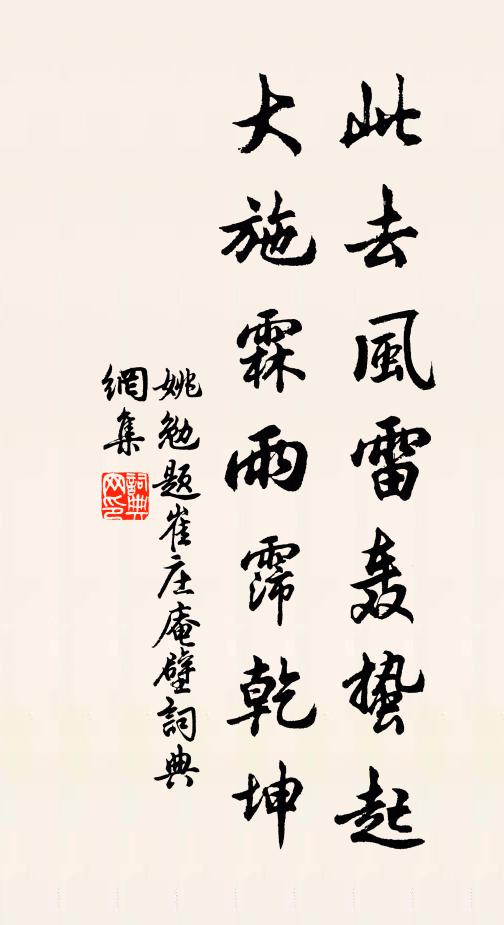 此去風雷轰蛰起
大施霖雨霈乾坤
姚勉题崔庄庵壁詞典
網集
詞典
网印